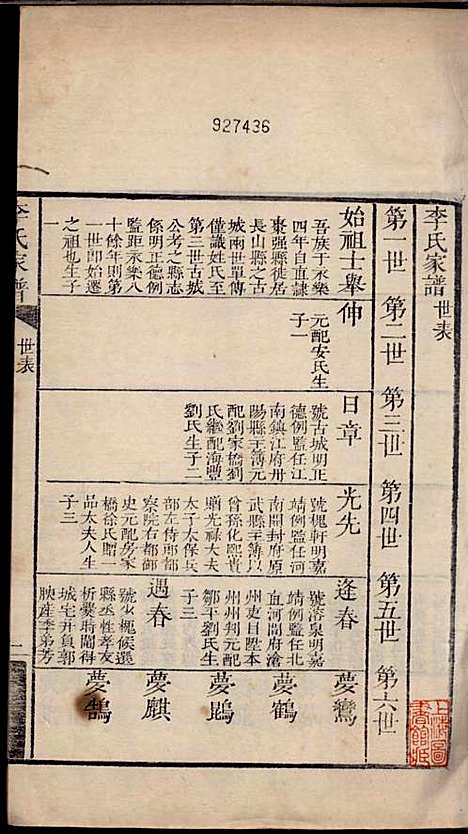 927436
李氏家譜 世表
第一世 第二世 第三世 第四世 第五世 第六世
始祖士舉
吾族于永樂
四年自直隸
棗强縣徙居
長山縣之古
城兩世單傳
僅識姓氏至
第三世古城
公考之縣志
係明正德例
監距永樂八
十餘年則第
一世即始遷
之祖也生子
一
仲
元配安氏生
子一
日章
號古城明正
德例監任江
南鎮江府丹
陽縣主簿元
配劉家橋劉
氏繼配海豐
劉氏生子二
光先
號槐軒明嘉
靖例監任河
南開封府原
武縣主簿以
曾孫化熙貴
贈光祿大夫
太子太保兵
部左侍郎都
察院右都御
史元配房家
橋徐氏贈一
品太夫人生
子三
逢春
號溶泉明嘉
靖例監任北
直河間府滄
州吏目陞本
州州判元配
鄒平劉氏生
子三
遇春
號少槐候選
縣丞性孝友
析爨時闔得
城宅并負郭
腴産季弟芳
夢鸞
夢鶴
夢鵾
夢麒
夢鵠
李氏家譜
世表
一